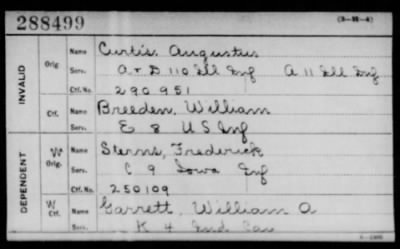 288499
(3-22-4)
INVALID
Orig. Name Curtis, Augustus
Serv. A & D 110 Ill Inf A 11 Ill Inf
Ctf. No. 290951
Ctf. Name Breeden, William
Serv. E 8 U S Inf
DEPENDENT
W Orig. Name Sterns, Frederick
Serv. C 9 Iowa Inf
Ctf. No. 250109
W Ctf. Name Garrett, William A
Serv. K 4 Ind Cav